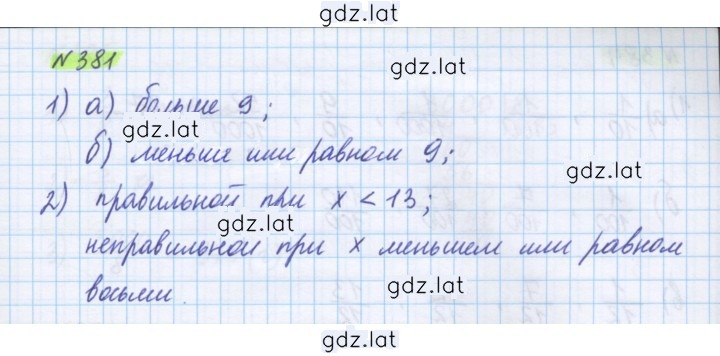 gdz.lat
№381
gdz.lat
1) а) больше 9;
gdz.lat
б) меньше или равном 9;
gdz.lat
2) правильной при x < 13;
gdz.lat
неправильной при x меньшем или равном
восьми.
gdz.lat
gdz.lat